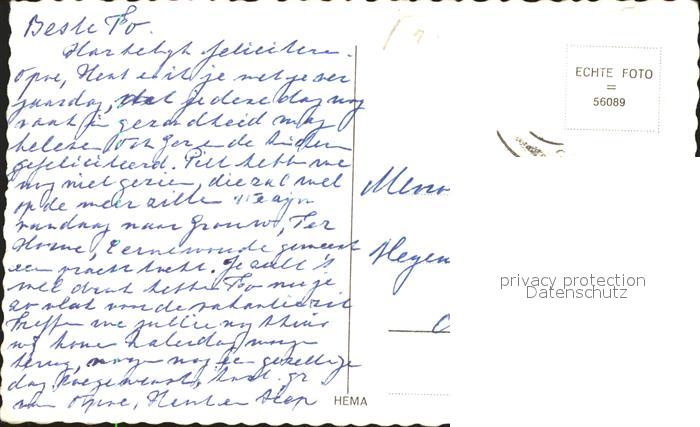 Beste To.
Hartelijk feliciteren
Opoe, Henk en ik je met je ver
jaardag, dat je deze dag nog
vaak in gezondheid mag
beleven ook Ger en de kinderen
gefeliciteerd. Piet hebben we
nog niet gezien, die zal wel
op de meer zitten
vandaag naar Grouw, Ter
Horne, Eernewoude geweest
een pracht tocht. Je zult 't
wel druk hebben To nu je
zo vlak voor de vakantie zit
Treffen we jullie nog thuis
wij komen zaterdag
terug, nog een gezellige
dag toegewenst, hart. gr
van Opoe, Henk en Siep
HEMA
ECHTE FOTO
=
56089
Mevr
privacy protection
Datenschutz